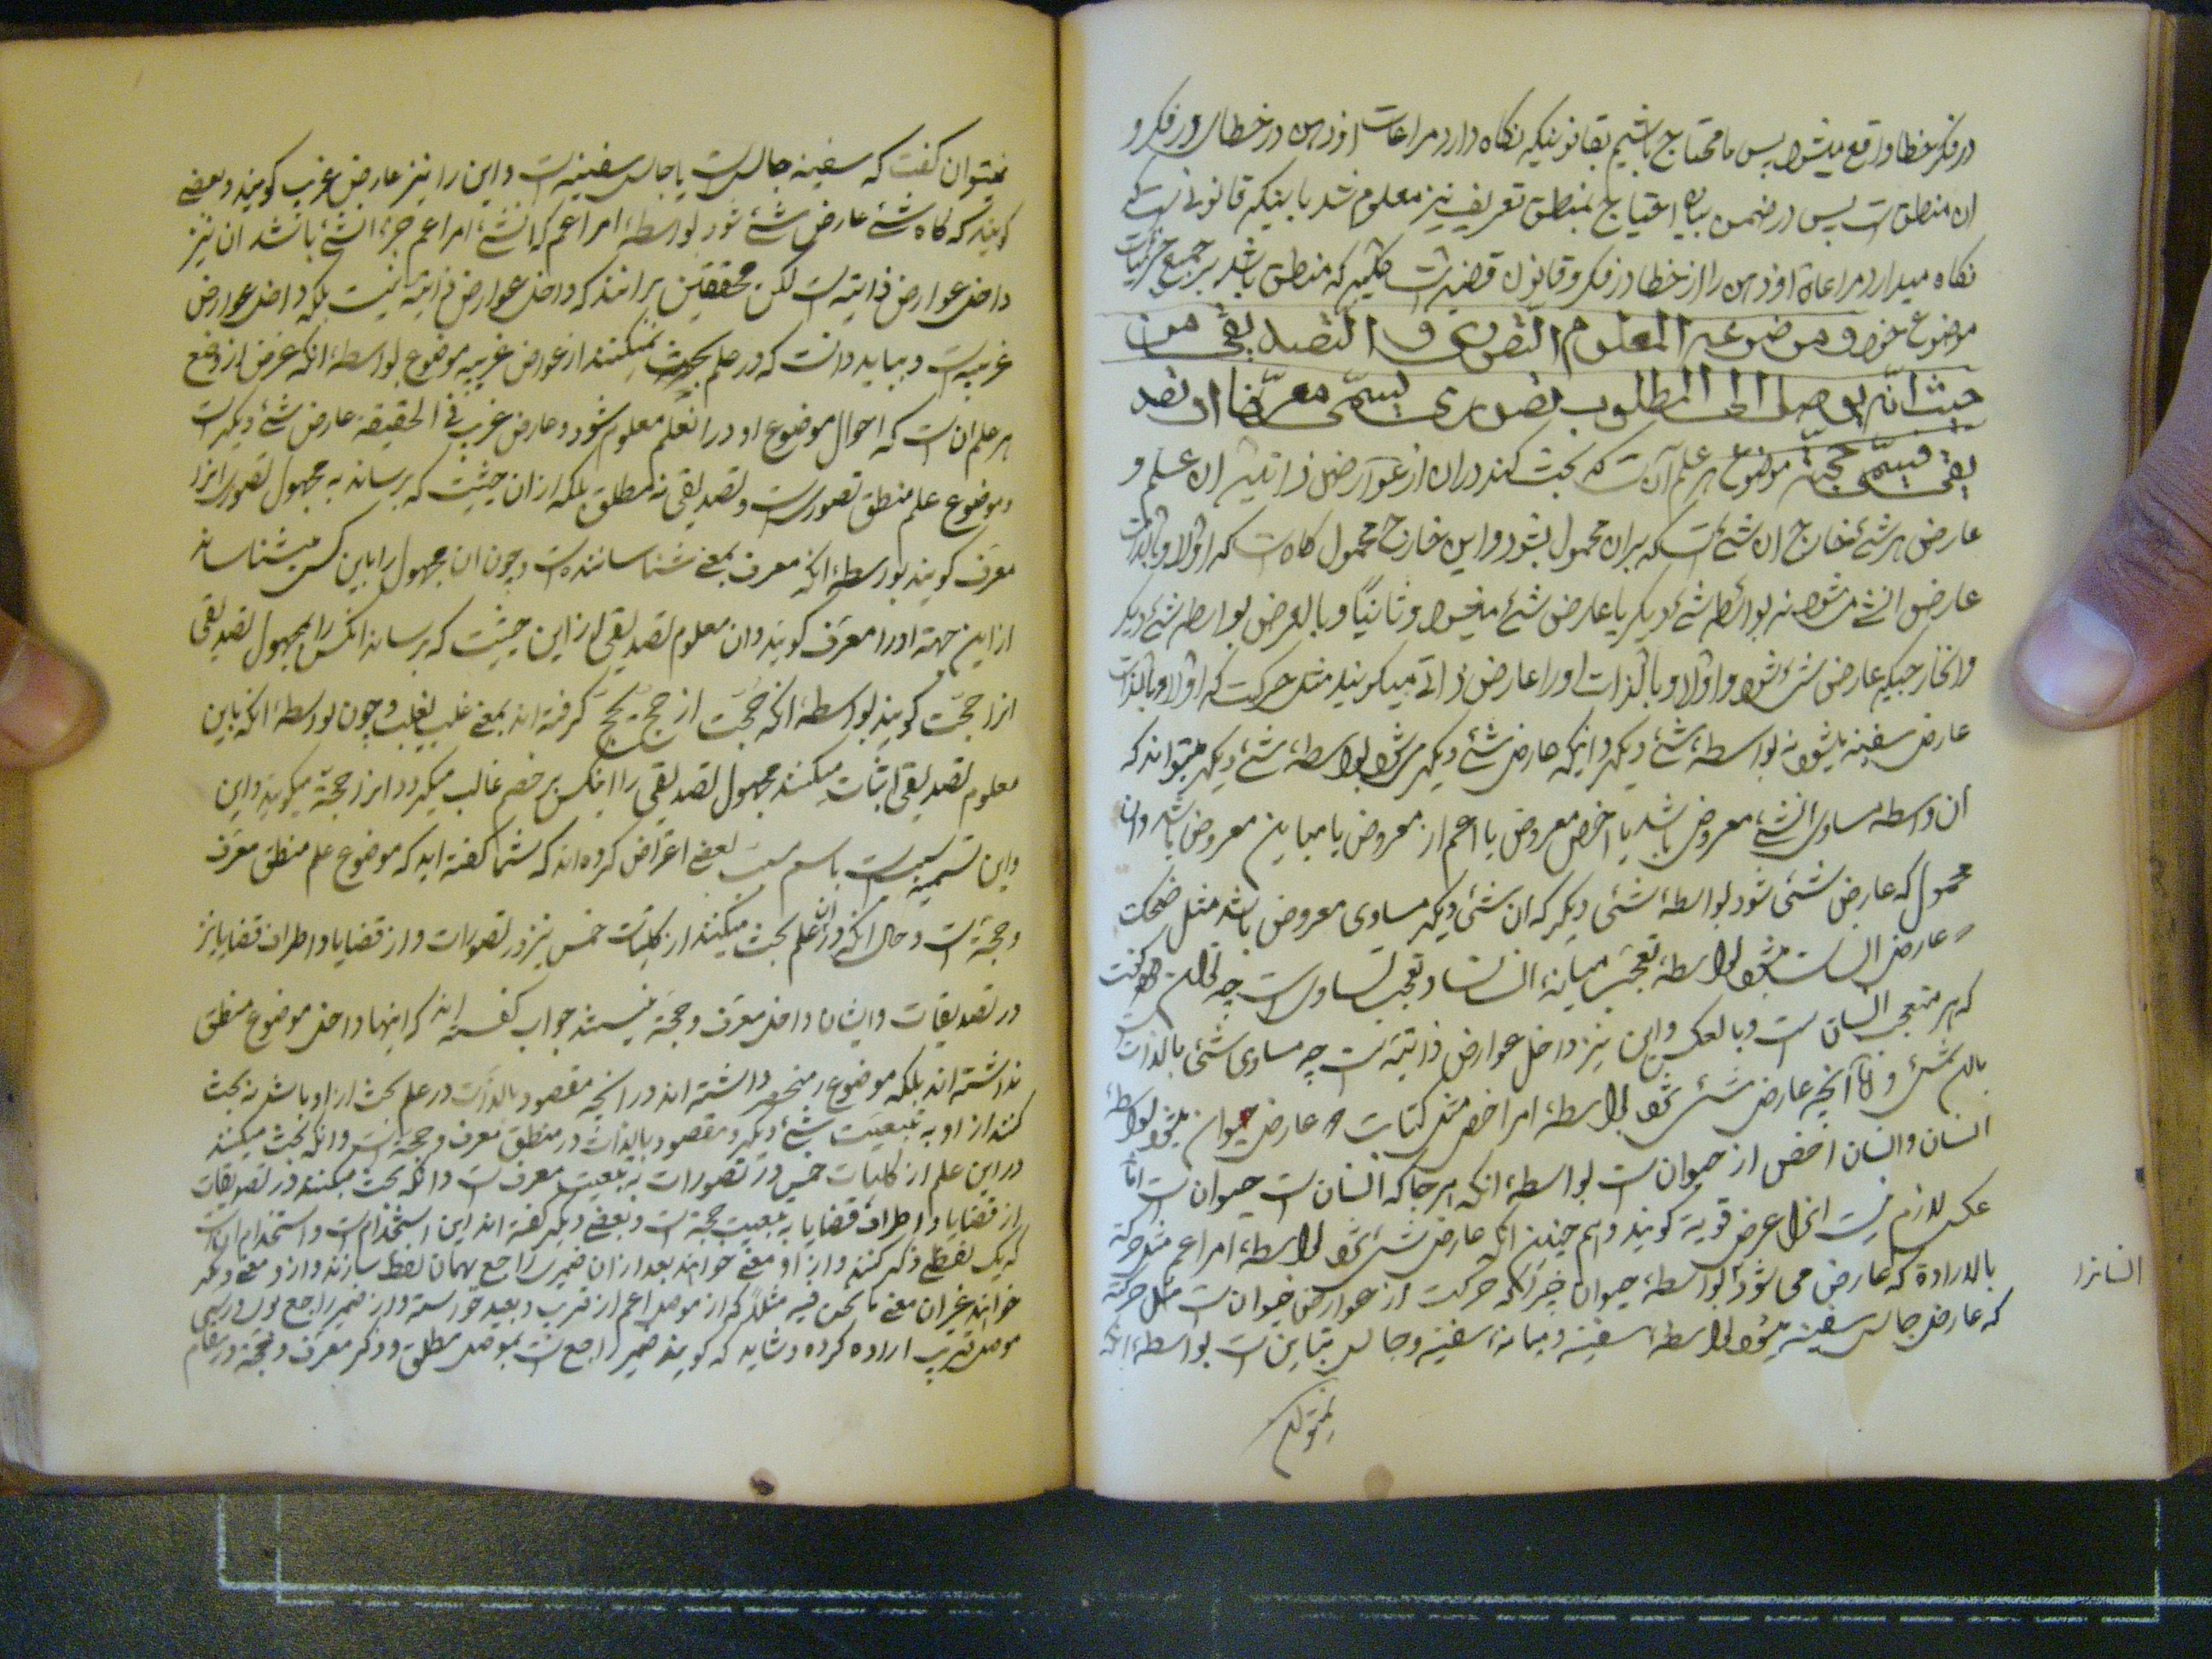 در فکر خطا واقع میشود پس ما محتاج باشیم بقانونیکه نکاه دارد مراعات او ذهن را در خطای در فکر و
ان منطق است پس در ضمن بیان احتیاج بمنطق تعریف نیز معلوم شد باینکه قانونی است که
نکاه میدارد مراعاة او ذهن را از خطا در فکر و قانون قضیه است کلیه که منطبق باشد بر جمیع جزئیات
موضوع خود و موضوعه المعلوم التصوری و التصدیقی من
حیث انه یوصل الی المطلوب تصوری یسمی معرفا او تصد
یقی فیسمی حجة موضوع هر علم آن است که بحث کند در ان از عوارض ذاتیه ان علم و
عارض هر شئ خارج ان شئ است که بر ان محمول بشود و این خارج محمول کاه است که اولا و بالذات
عارض انشئ میشود نه بواسطه شئ دیکر یا عارض شئ میشود و ثانیا و بالعرض بواسطه شئ دیکر
و انخارجیکه عارض شئ شود و اولا و بالذات اورا عارض ذاتی میکویند مثل حرکت که اولا و بالذات
عارض سفینه میشود نه بواسطهٔ شئ دیکر و انکه عارض شئ دیکر میشود بواسطهٔ شئ دیکر میتواند که
ان واسطه مساوی انشئ معروض باشد یا اخص معروض یا اعم از معروض یا مباین معروض باشد وان
محمول که عارض شئی شود بواسطهٔ شئی دیکر که ان شئی دیکر مساوی معروض باشد مثل ضحک
که عارض انسان میشود بواسطهٔ تعجب میانهٔ انسان و تعجب تساوی است چه توان کفت
که هر متعجب انسان است و بالعکس و این نیز داخل عوارض ذاتیه است چه مساوی شئی بالذات
ان شئ و اما آنچه عارض شئ شود بواسطهٔ امر اخص مثل کتابت که عارض حیوان میشود بواسطهٔ
انسان و انسان اخص از حیوان است بواسطهٔ انکه هر جا که انسان است حیوان است اما
عکس لازم نیست انرا عرض قویة کویند و هم چنین انکه عارض شئ شود بواسطهٔ امر اعم مثل حرکة
بالارادة که عارض می شود بواسطهٔ حیوان چرا که حرکت از عوارض حیوان است مثل حرکة
انسانرا
که عارض جالس سفینه میشود بواسطهٔ سفینه و میانهٔ سفینه و جالس تباین است بواسطهٔ انکه
نمیتوان
نمیتوان کفت که سفینه جالس است یا جالس سفینه است و این را نیز عارض غریب کویند و بعضی
کویند که کاه شئ عارض شئ شود بواسطهٔ امر اعم که انشئ امر اعم جزء انشئ باشد ان نیز
داخل عوارض ذاتیه است لکن محققین بر انند که داخل عوارض ذاتیه نیست بلکه داخل عوارض
غریبه است و بباید دانست که در علم بحث نمیکنند از عوارض غریبه موضوع بواسطهٔ انکه غرض از وضع
هر علم ان است که احوال موضوع او در انعلم معلوم شود و عارض غریب فی الحقیقة عارض شئ دیکر است
و موضوع علم منطق تصوری است و تصدیقی نه مطلق بلکه از ان حیثیت که برساند به مجهول تصوری انرا
معرف کویند بواسطهٔ انکه معرف بمعنی شناساننده است و چون ان مجهول را باین کس میشناساند
از این جهة اورا معرف کویند وان معلوم تصدیقی از این حیثیت که برساند انکس را بمجهول تصدیقی
انرا حجت کویند بواسطهٔ انکه حجت از حج یحج کرفته اند بمعنی غلب یغلب و چون بواسطهٔ انکه باین
معلوم تصدیقی اثبات میکنند مجهول تصدیقی را انکس بر خصم غالب میکردد انرا حجة میکویند و این
و این تسمیه سبب است باسم مسبب بعضی اعتراض کرده اند که شما کفته اید که موضوع علم منطق معرف
و حجة است و حال انکه در ان علم بحث میکنند از کلیات خمس نیز در تصورات و از قضایا و اطراف قضایا نیز
در تصدیقات و ایشان داخل معرف و حجة نیستند جواب کفته اند که اینها داخل موضوع منطق
نداشته اند بلکه موضوع را منحصر داشته اند در انچه مقصود بالذات در علم بحث از او باشد نه بحث
کنند از او به تبعیت شئ دیکر و مقصود بالذات در منطق معرف و حجة است و انکه بحث میکنند
در این علم از کلیات خمس در تصورات به تبعیت معرف است و انکه بحث میکنند در تصدیقات
از قضایا و اطراف قضایا به تبعیت حجة است و بعضی دیکر کفته اند این استخدام است و استخدام ان است
که یک لفظی ذکر کنند و از او معنی خواهند بعد از ان ضمیری راجع بهمان لفظ سازند و از او معنی دیکر
خواهند غیر ان معنی ما نحن فیه مثلا که از موصل اعم از قریب و بعید خواسته و از ضمیر راجع بوی در یسمی
موصل قریب اراده کرده و شاید که کویند ضمیر راجع است بموصل مطلق و ذکر معرف و حجة در مقام